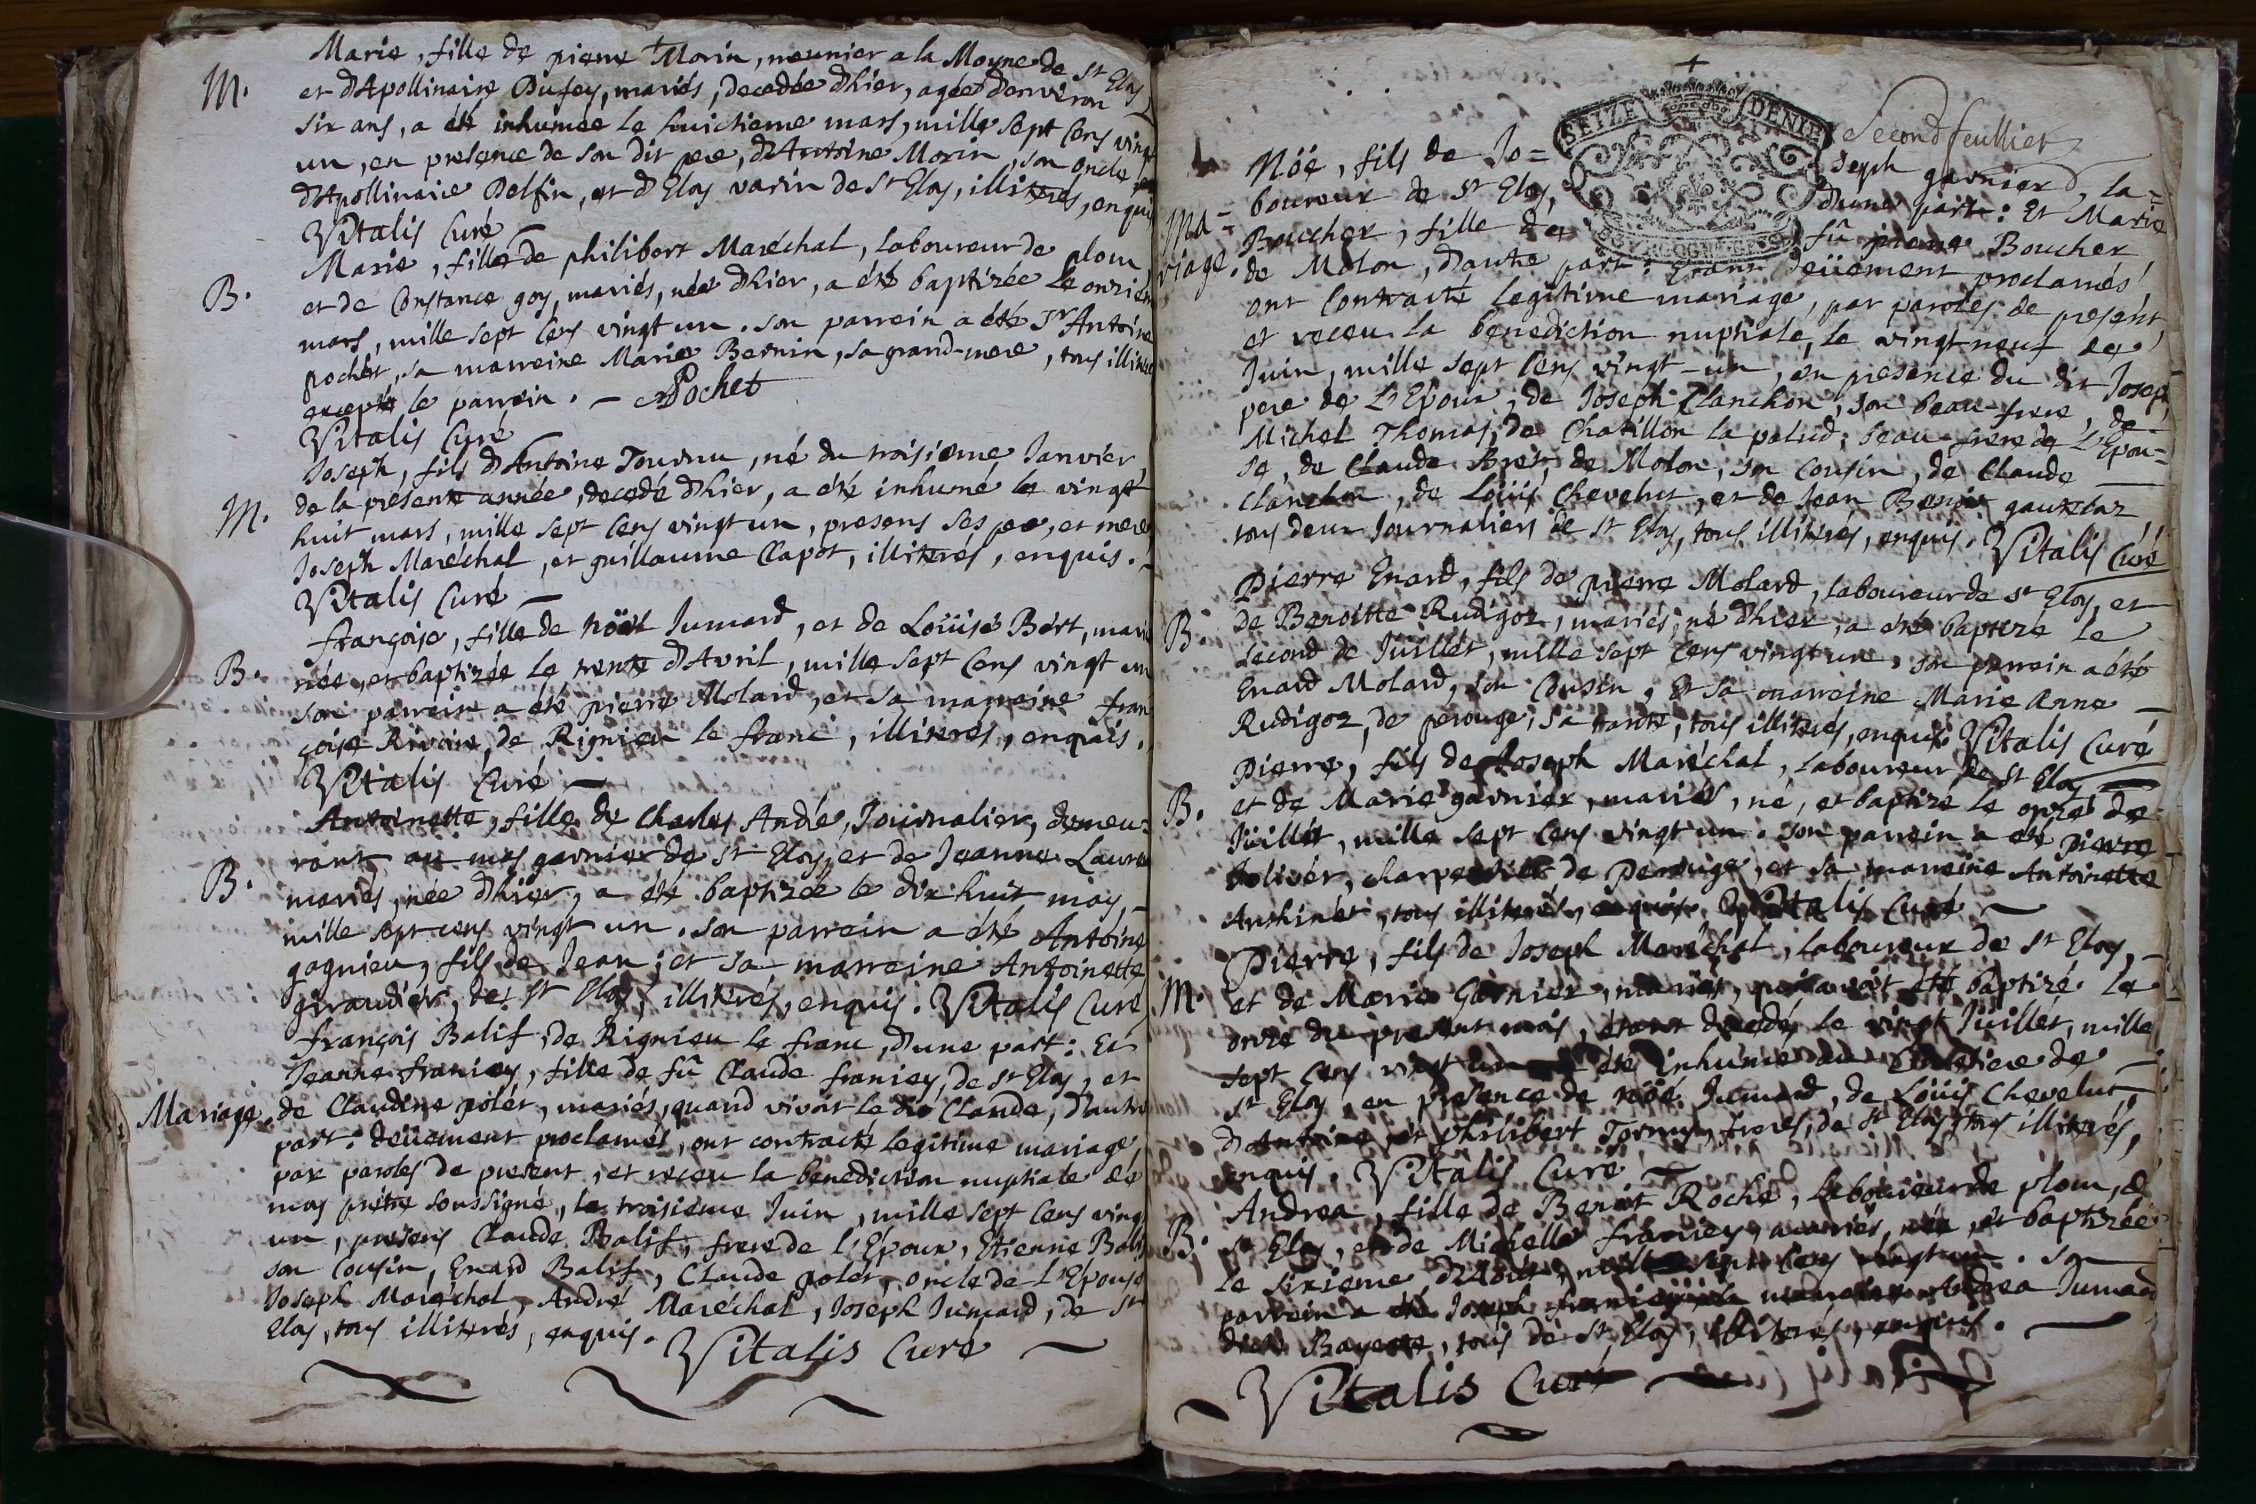 Marie, fille de pierre Morin, meunier a la Moyne de St Eloy
M.
et d'Apollinaire Dufey, mariés, decedée d'hier, agée d'environ
six ans, a été inhumée le huictieme mars, mille sept cens vingt
un, en presence de son dit pere, d'Antoine Morin, son oncle
d'Apollinaire Delfin, et d'Eloy varin de St Eloy, illiterés, enquis
Vitalis Curé
Marie, fille de philibert Maréchal, laboureur de plom
B.
et de Constance goy, mariés, née d'hier, a été baptizée le onzie
mars, mille sept cens vingt un. son parrein a été Sr Antoine
pochet, sa marreine Marie Bernin, sa grand-mere, tous illiter
excepté le parrein. - APochet
Vitalis Curé
Joseph, fils d'Antoine Tournu, né du troisieme Janvier
M.
de la presente année, decedé d'hier, a été inhumé le vingt
huit mars, mille sept cens vingt un, presens ses pere, et mere
Joseph Maréchal, et guillaume Clapot, illiterés, enquis.
Vitalis Curé
françoise, fille de Nöel Jumard, et de Loüise Bert, marié
B.
née, et baptizée le trente d'Avril, mille sept cens vingt un
son parrein a été pierre Molard, et sa marreine fran
çoise Rivoire, de Rignieu le franc, illiterés, enquis.
Vitalis Curé
Antoinette, fille de Charles André, Journalier, demeu=
rant au mas garnier de St Eloy, et de Jeanne Laure
B.
mariés, née d'hier, a été baptizée le dix huit may,
mille sept cens vingt un. son parrein a été Antoine
gagnieu, fils de Jean; et sa marreine Antoinette
giraudier, de St Eloy, illiterés, enquis. Vitalis Curé
françois Balif, de Rignieu le franc, d'une part: Et
Jeanne franiey, fille de fû Claude franiey, de St Eloy, et
Mariage.
de Claudine polet, mariés, quand vivoit le dit Claude, d'autre
part: deüement proclamés, ont contracté legitime mariage,
par paroles de present, et receu la benediction nuptiale de
moy prêtre soussigné, le troisieme Juin, mille sept cens vingt
un, presens Claude Balif, frere de l'Epoux, Etienne Balif
son cousin, Enard Balif, Claude polet, oncle de l'Epouse
Joseph Maréchal, André Maréchal, Joseph Jumard, de St
Eloy, tous illiterés, enquis.
Vitalis Curé
SEIZE DENIE
Second feuillet
Nöé, fils de Jo= seph garnier, la=
boureur de St Eloy, d'une part: Et Marie
Ma=
riage.
Boucher, fille de fû pierre Boucher
de Molon, d'autre part: Etant deüement proclamés
ont contracté legitime mariage, par paroles de present,
et receu la benediction nuptiale, le vingt neuf de
Juin, mille sept cens vingt-un, en presence du dit Joseph
pere de l'Epoux, de Joseph Clanchon, son beau-frere, de
Michel Thomas, de Chatillon la palud, beau-frere de l'Epou=
se, de Claude Bret, de Molon, son cousin, de Claude
Clanchon, de Loüis Chevelut, et de Jean gautelaz
tous deux Journaliers de St Eloy, tous illiterés, enquis. Vitalis Curé
Pierre Enard, fils de pierre Molard, laboureur de St Eloy, et
B.
de Benoitte Rudigoz, mariés, né d'hier, a été baptizé le
second de Juillet, mille sept cens vingt un, son parrein a été
Enard Molard, son cousin, Et sa marreine Marie Anne
Rudigoz, de perouge, sa tante, tous illiterés, enquis. Vitalis Curé
Pierre, fils de Joseph Maréchal, laboureur de St Eloy
B.
et de Marie garnier, mariés, né, et baptizé le onze de
Juillet, mille sept cens vingt un. son parrein a été pierre
Jolivér, charpentier de Perouge, et sa marreine Antoinette
Anthinét, tous illiterés, enquis. Vitalis Curé
Pierre, fils de Joseph Maréchal, laboureur de St Eloy,
M.
et de Marie Garnier, mariés, qui avoit été baptizé le
onze du present mois, étant decedé le vingt Juillet, mille
sept cens vingt un été inhumé au Cimetiere de
St Eloy, en presence de nöé Jumard, de Loüis Chevelut,
d'Antoine et philibert Tornu, freres, de St Eloy, tous illiterés,
enquis. Vitalis Curé
Andrea, fille de Benoit Roche, laboureur de plom, de
B.
St Eloy, et de Michelle franiey, mariés, née, et baptizée
le sixieme d'Aout, mille sept cens vingt un. son
parrein a été Joseph franiey, marreine Andrea Jumard
tous de St Eloy, illiterés, enquis.
Vitalis Curé